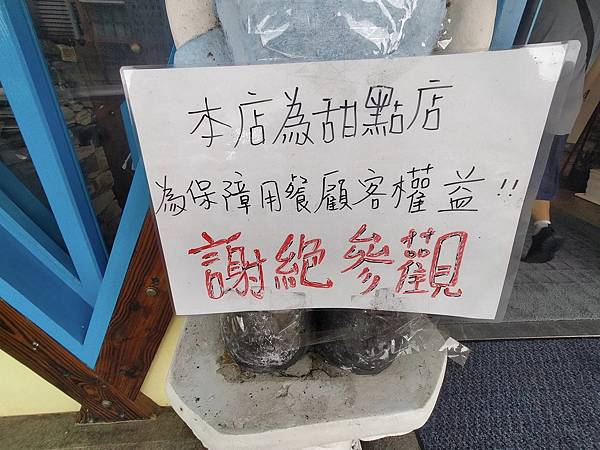 本店為甜點店
為保障用餐顧客權益!!
謝絕參觀